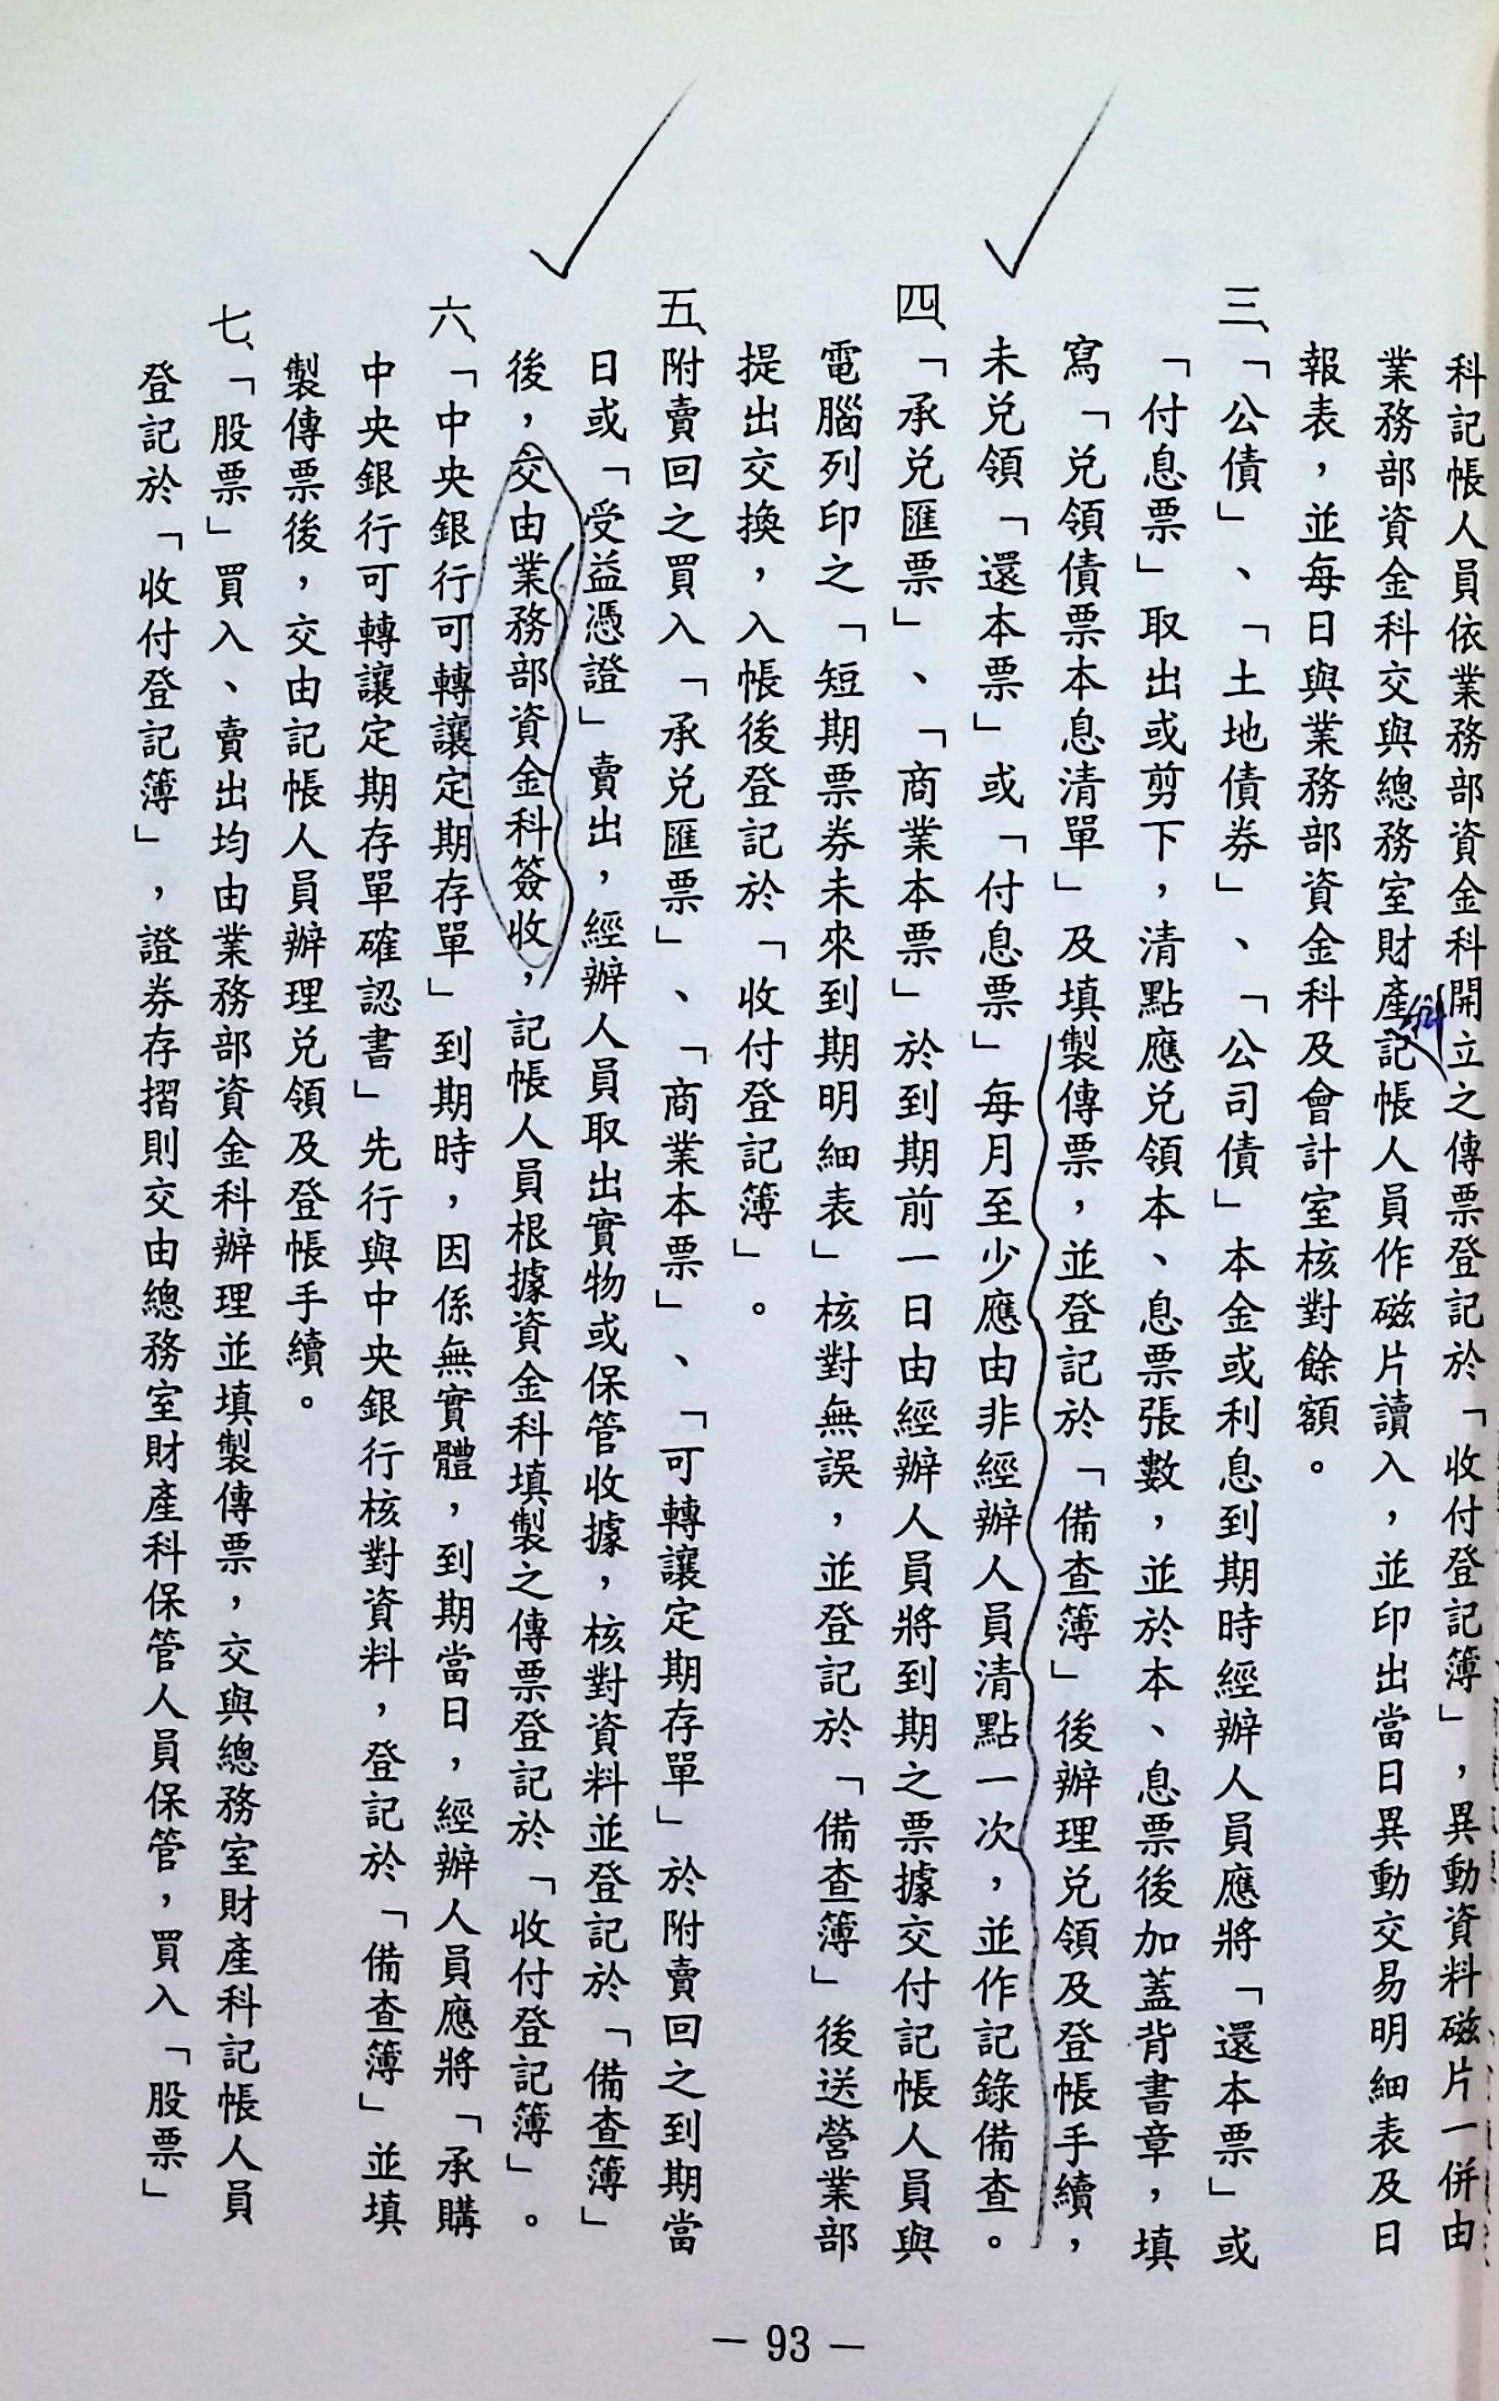 科記帳人員依業務部資金科開立之傳票登記於「收付登記簿」，異動資料磁片一併由
業務部資金科交與總務室財產記帳人員作磁片讀入，並印出當日異動交易明細表及日
報表，並每日與業務部資金科及會計室核對餘額。
三、「公債」、「土地債券」、「公司債」本金或利息到期時經辦人員應將「還本票」或
「付息票」取出或剪下，清點應兌領本、息票張數，並於本、息票後加蓋背書章，填
寫「兌領債票本息清單」及填製傳票，並登記於「備查簿」後辦理兌領及登帳手續，
未兌領「還本票」或「付息票」每月至少應由非經辦人員清點一次，並作記錄備查。
四、「承兌匯票」、「商業本票」於到期前一日由經辦人員將到期之票據交付記帳人員與
電腦列印之「短期票券未來到期明細表」核對無誤，並登記於「備查簿」後送營業部
提出交換，入帳後登記於「收付登記簿」。
五、附賣回之買入「承兌匯票」、「商業本票」、「可轉讓定期存單」於附賣回之到期當
日或「受益憑證」賣出，經辦人員取出實物或保管收據，核對資料並登記於「備查簿」
後，交由業務部資金科簽收，記帳人員根據資金科填製之傳票登記於「收付登記簿」。
六、「中央銀行可轉讓定期存單」到期時，因係無實體，到期當日，經辦人員應將「承購
中央銀行可轉讓定期存單確認書」先行與中央銀行核對資料，登記於「備查簿」並填
製傳票後，交由記帳人員辦理兌領及登帳手續。
七、「股票」買入、賣出均由業務部資金科辦理並填製傳票，交與總務室財產科記帳人員
登記於「收付登記簿」，證券存摺則交由總務室財產科保管人員保管，買入「股票」
— 93 —